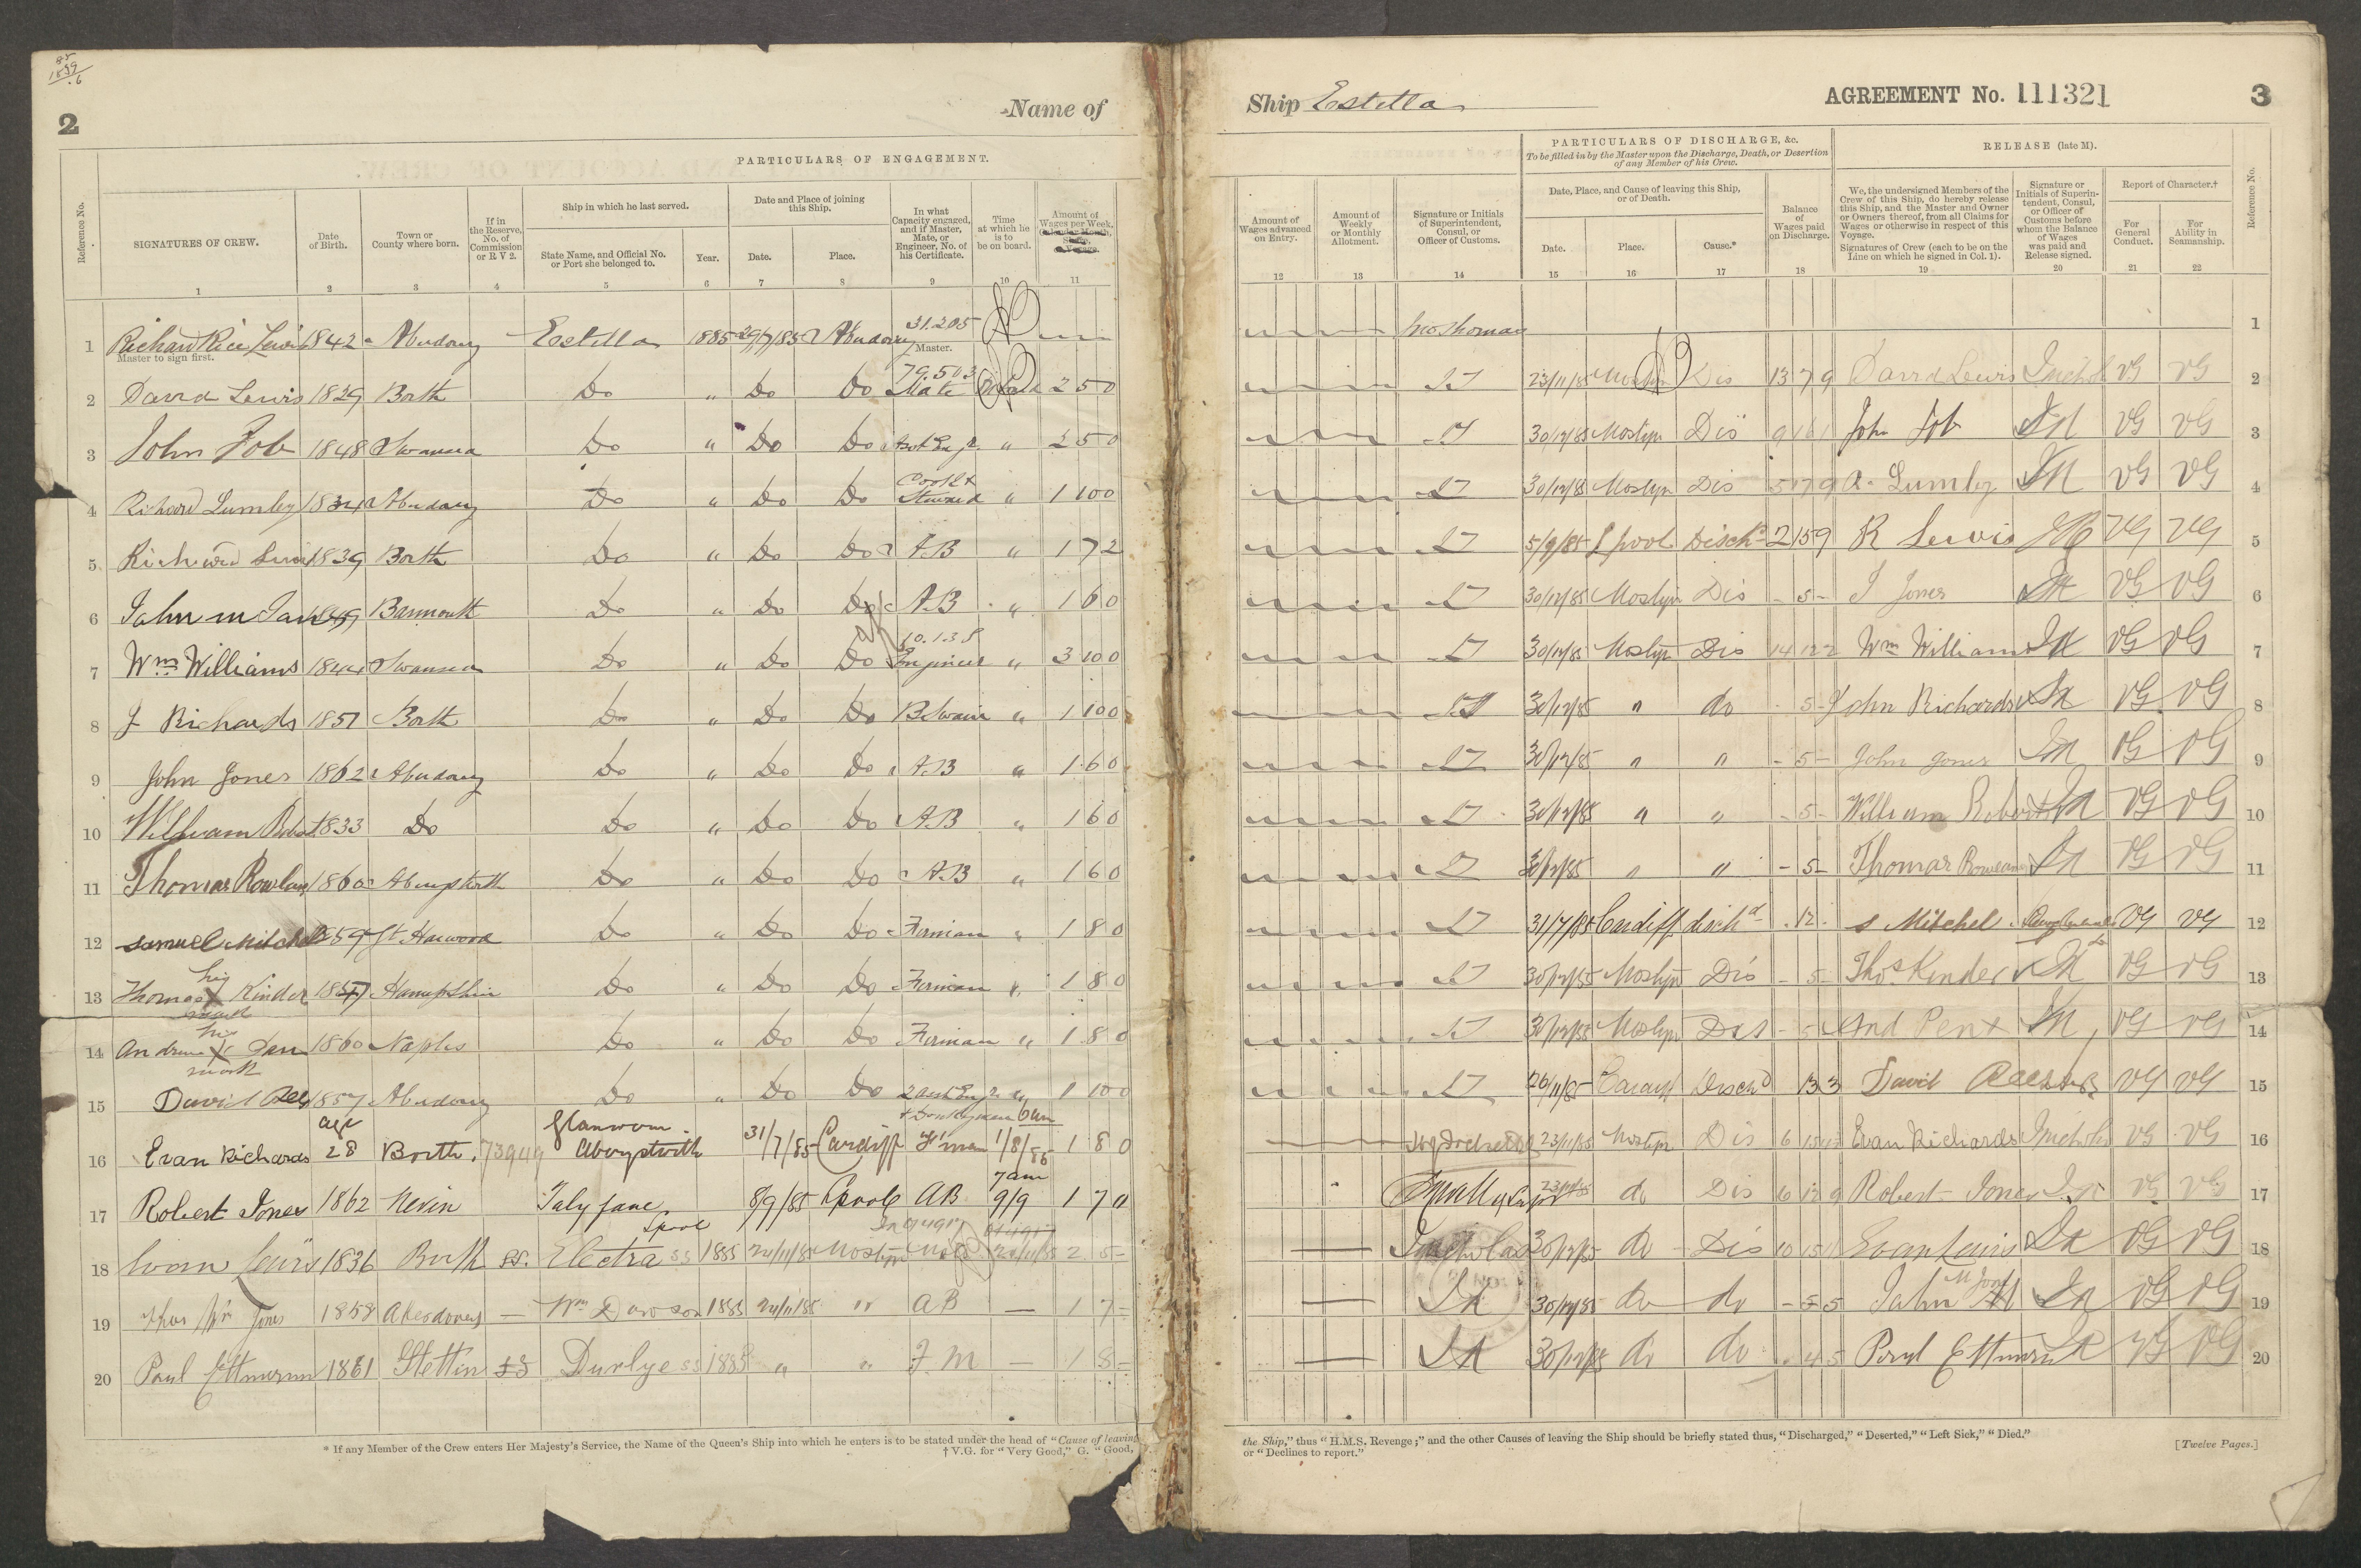 85
1899
.6
2
Name of
Ship Estella
AGREEMENT No. 111321
3
PARTICULARS OF ENGAGEMENT.
PARTICULARS OF DISCHARGE, &c.
To be filled in by the Master upon the Discharge, Death, or Desertion of any Member of his Crew.
RELEASE (late M).
Reference No.
SIGNATURES OF CREW.
Date of Birth.
Town or County where born.
If in the Reserve, No. of Commission or R V 2.
Ship in which he last served.
State Name, and Official No. or Port she belonged to.
Year.
Date and Place of joining this Ship.
Date.
Place.
In what Capacity engaged, and if Master, Mate, or Engineer, No. of his Certificate.
Time at which he is to be on board.
Amount of Wages per Week, Calendar Month, Share, or Voyage.
Amount of Wages advanced on Entry.
Amount of Weekly or Monthly Allotment.
Signature or Initials of Superintendent, Consul, or Officer of Customs.
Date, Place, and Cause of leaving this Ship, or of Death.
Date.
Place.
Cause.*
Balance of Wages paid on Discharge.
We, the undersigned Members of the Crew of this Ship, do hereby release this Ship, and the Master and Owner or Owners thereof, from all Claims for Wages or otherwise in respect of this Voyage.
Signatures of Crew (each to be on the Line on which he signed in Col. 1).
Signature or Initials of Superintendent, Consul, or Officer of Customs before whom the Balance of Wages was paid and Release signed.
Report of Character.†
For General Conduct.
For Ability in Seamanship.
Reference No.
1 2 3 4 5 6 7 8 9 10 11 12 13 14 15 16 17 18 19 20 21 22
1 Richard Rice Lewis 1842 Aberdovey Estella 1885 29/7/85 Aberdovey 31.205 Master. 1
Master to sign first.
2 David Lewis 1829 Borth Do " Do Do 79.503 Mate 2 5 0 LT 23/11/85 Mostyn Dis 13 7 9 David Lewis VG VG 2
3 John Job 1848 Swansea Do " Do Do " 2 5 0 LT 30/12/85 Mostyn Dis John Job VG VG 3
4 Richard Lumley Aberdovey Do " Do Do Cook & Steward " 1 10 0 LT 30/12/85 Mostyn Dis 5 7 9 Lumley VG VG 4
5 Richard Lewis 1839 Borth Do " Do Do A.B " 1 7 2 LT 5/9/85 Lpool Disch 2 15 9 R Lewis VG VG 5
6 Barmouth Do " Do Do A.B " 1 6 0 LT 30/12/85 Mostyn Dis - 5 - J Jones VG VG 6
7 Wm Williams Swansea Do " Do Do Engineer " 3 10 0 LT 30/12/85 Mostyn Dis 14 12 2 Wm Williams VG VG 7
8 J Richards 1857 Borth Do " Do Do Bswain " 1 10 0 LT 30/12/85 " do 5 John Richards VG VG 8
9 John Jones 1862 Aberdovey Do " Do Do A.B " 1 6 0 LT 30/12/85 " " - 5 - John Jones VG VG 9
10 William Robert 1833 Do Do " Do Do A.B " 1 6 0 LT 30/12/85 " " - 5 - William Roberts VG VG 10
11 Thomas Rowland 1860 Aberystwth Do " Do Do A.B " 1 6 0 LT 30/12/85 " " - 5 - Thomas Rowland VG VG 11
12 Samuel Mitchel 1859 Do " Do Do Fireman " 1 8 0 LT 31/7/85 Cardiff dischd 12 S Mitchel VG VG 12
13 Thomas his X mark Kinder Hampshire Do " Do Do Fireman " 1 8 0 LT 30/12/85 Mostyn Dis - 5 - Thos Kinder VG VG 13
14 Andrew his X mark 1860 Naples Do " Do Do Fireman " 1 8 0 LT 30/12/85 Mostyn Dis - 5 And Pen VG VG 14
15 David Rees 1857 Aberdovey Do " Do Do 2 asst Engr & Donkeyman " 1 10 0 LT 26/11/85 Cardiff Dischd 13 3 David Rees VG VG 15
16 Evan Richards age 28 Borth 73949 Glanwern Aberystwith 31/7/85 Cardiff F'man 6 am 1/8/85 1 8 0 23/11/85 Mostyn Dis 6 Evan Richards VG VG 16
17 Robert Jones 1862 Nevin Lpool 8/9/85 Lpool AB 7 am 9/9 1 7 " do Dis 6 12 9 Robert Jones VG VG 17
18 Evan Lewis 1836 Borth SS. Electra SS 1885 24/11/85 Mostyn Mate 2 5 - 30/12/85 do Dis 10 15 Evan Lewis VG VG 18
19 Jones 1858 Aberdovey — Wm Dawson 1885 24/11/85 " AB — 1 7 - 30/12/85 do do - 5 5 John M Jones VG VG 19
20 Paul Ettmann 1861 Stettin SS SS 1885 " " F M — 1 8 - 30/12/85 do do . 4 5 Paul Ettmann VG VG 20
* If any Member of the Crew enters Her Majesty's Service, the Name of the Queen's Ship into which he enters is to be stated under the head of "Cause of leaving
the Ship," thus "H.M.S. Revenge;" and the other Causes of leaving the Ship should be briefly stated thus, "Discharged," "Deserted," "Left Sick," "Died."
† V.G. for "Very Good," G. "Good,
or "Declines to report."
[Twelve Pages.]